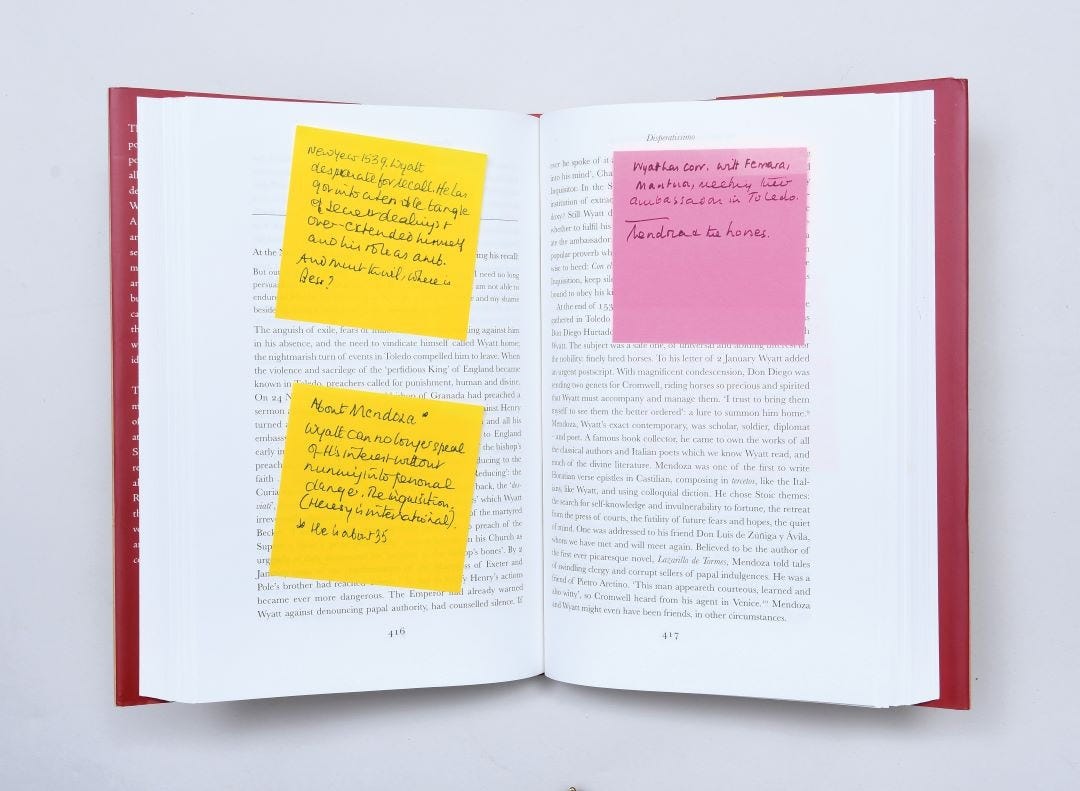 New Year 1539. Wyatt
desperate for recall. He has
got into a terrible tangle
of secret dealings &
over-extended himself
and his role as amb.
And must know, where is
Bess?
At the N
ing his recall:
But our
I need no long
persua
am not able to
endure
r and my shame
beside
The anguish of exile, fears of
ing against him
in his absence, and the need to vindicate himself called Wyatt home;
the nightmarish turn of events in Toledo compelled him to leave. When
the violence and sacrilege of the ‘perfidious King’ of England became
known in Toledo, preachers called for punishment, human and divine.
On 24 N
hop of Granada had preached a
sermon
against Henry
turned
and all his
embass
to England
early i
the bishop’s
preach
ducing to the
faith
Reducing’: the
Curia
back, the ‘de-
viati’,
s’ which Wyatt
irrev
of the martyred
Beck
to preach of the
Sup
in his Church as
urg
op’s bones’. By 2
Jan
ss of Exeter and
Pole’s brother had reached
y Henry’s actions
became ever more dangerous. The Emperor had already warned
Wyatt against denouncing papal authority, had counselled silence. If
About Mendoza *
Wyatt can no longer speak
of H's interest without
running into personal
danger. The Inquisition.
(Heresy is international).
* He is about 35
416
Disperatissimo
ver he spoke of it a
into his mind’, Cha
Inquisitor. In the S
institution of extrao
doxy? Still Wyatt d
whether to fulfil his
are the ambassador
popular proverb wh
wise to heed: Con el
Inquisition, keep sile
bound to obey his ki
At the end of 153
gathered in Toledo
Don Diego Hurtado
Wyatt. The subject was a safe one, of universal and abiding interest for
the nobility: finely bred horses. To his letter of 2 January Wyatt added
an urgent postscript. With magnificent condescension, Don Diego was
sending two genets for Cromwell, riding horses so precious and spirited
that Wyatt must accompany and manage them. ‘I trust to bring them
myself to see them the better ordered’: a lure to summon him home.⁹
Mendoza, Wyatt’s exact contemporary, was scholar, soldier, diplomat
– and poet. A famous book collector, he came to own the works of all
the classical authors and Italian poets which we know Wyatt read, and
much of the divine literature. Mendoza was one of the first to write
Horatian verse epistles in Castilian, composing in tercetos, like the Ital-
ians, like Wyatt, and using colloquial diction. He chose Stoic themes:
the search for self-knowledge and invulnerability to fortune, the retreat
from the press of courts, the futility of future fears and hopes, the quiet
of mind. One was addressed to his friend Don Luis de Zúñiga y Ávila,
whom we have met and will meet again. Believed to be the author of
the first ever picaresque novel, Lazarillo de Tormes, Mendoza told tales
of swindling clergy and corrupt sellers of papal indulgences. He was a
friend of Pietro Aretino. ‘This man appeareth courteous, learned and
also witty’, so Cromwell heard from his agent in Venice.¹⁰ Mendoza
and Wyatt might even have been friends, in other circumstances.
Wyatt has corr. with Ferrara,
Mantua, meeting their
ambassadors in Toledo.
Mendoza & the horses.
417